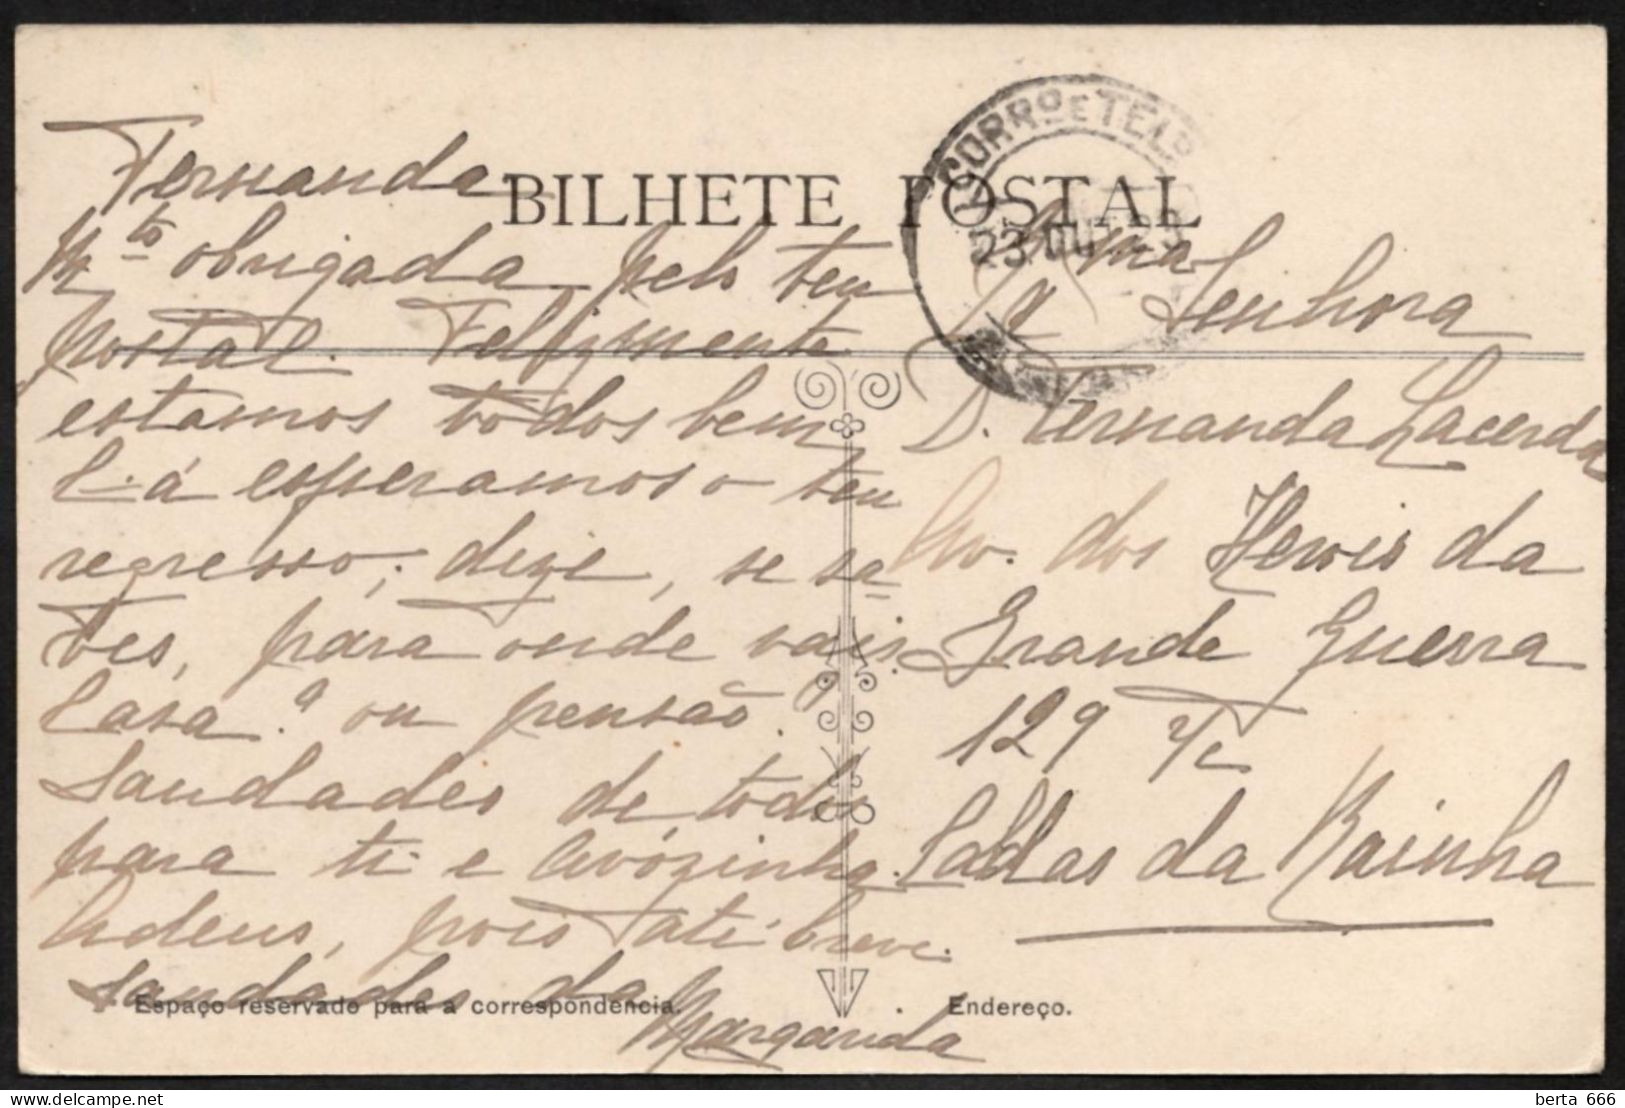 BILHETE POSTAL
CORRO E TELO
23 OUT 29
Fernanda
Mto obrigada pelo teu
postal. Felizmente
estamos todos bem
Cá esperamos o teu
regresso; dize, se sa-
bes, para onde vais.
Casa? ou pensão?
Saudades de todos
para ti e Avózinha.
Adeus, pois até breve.
Saudades da
Margarida
Exma
Senhora
D. Fernanda Lacerda
Av. dos Herois da
Grande Guerra
129 r/c
Caldas da Rainha
Espaço reservado para a correspondencia.
Endereço.
delcampe.net
berta 666